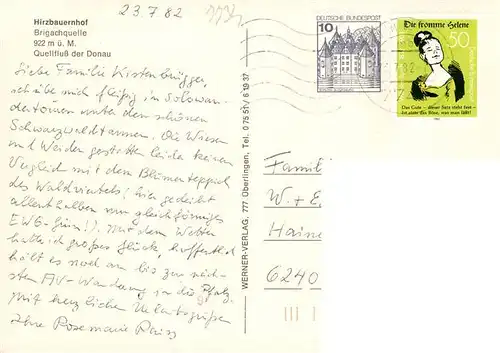 23.7.82
Hirzbauernhof
Brigachquelle
922 m ü. M.
Quellfluß der Donau
Liebe Familie
übe mich fleißig in Solowan-
dertouren unter den schönen
Schwarzwaldtannen. Die Wiesen
und Weiden gestatten leider keinen
Vergleich mit dem Blumenteppich
des Waldviertels! (hier gedeiht
allenthalben nur gleichförmiges
EWG-Grün!). Mit dem Wetter
hatte ich großes Glück, hoffentlich
hält es noch an bis zur näch-
sten AV-Wanderung in die Pfalz.
Mit herzlichen Urlaubsgrüßen
Ihre Rosemarie
WERNER-VERLAG, 777 Überlingen, Tel. 0 75 51 / 6 19 37
10
DEUTSCHE BUNDESPOST
Die fromme Helene
50
Das Gute – dieser Satz steht fest –
Ist stets das Böse, was man läßt!
Famili
W. + E.
Haine
6240